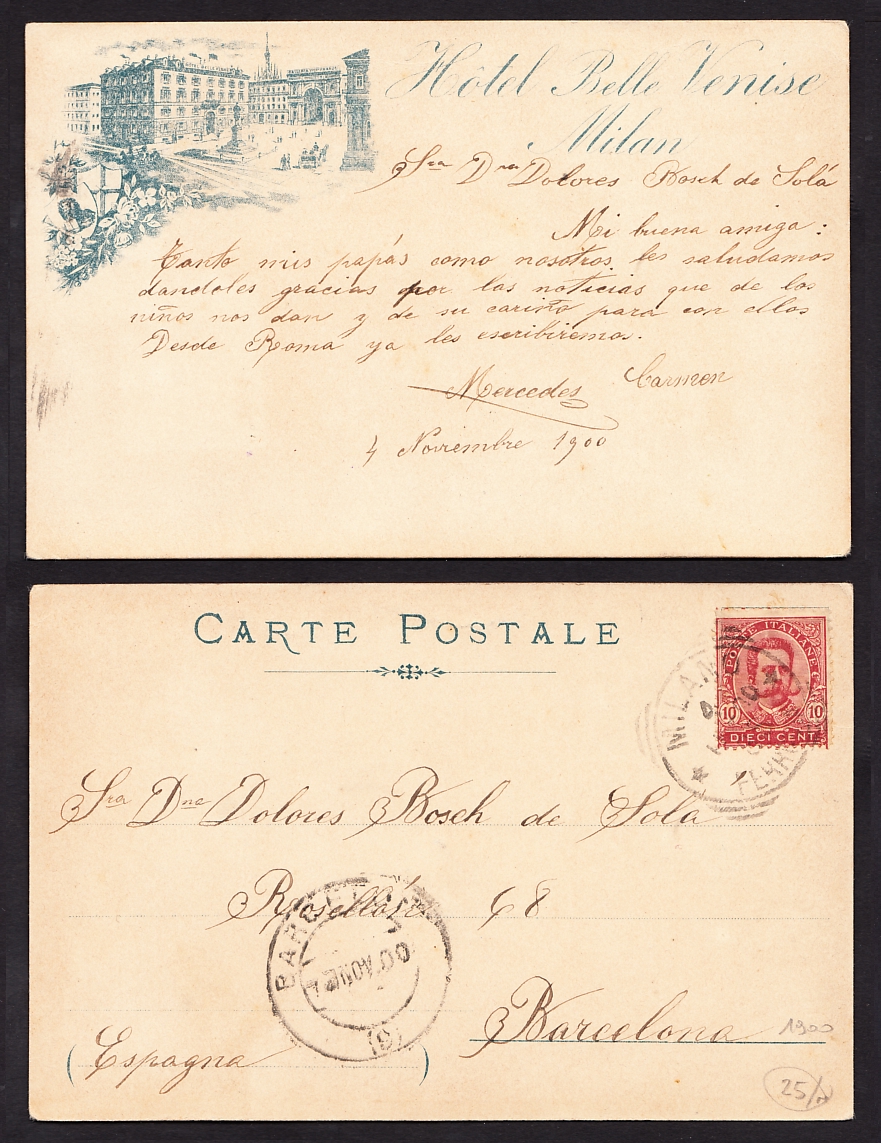 Hôtel Belle Venise
Milan
Sra Dna Dolores Bosch de Solá
Mi buena amiga:
Tanto mis papás como nosotros les saludamos
dandoles gracias por las noticias que de los
niños nos dan y de su cariño para con ellos
Desde Roma ya les escribiremos.
Mercedes Carmen
4 Noviembre 1900
CARTE POSTALE
POSTE ITALIANE
10 10
DIECI CENT.
MILANO
FERROVIA
Sra Dna Dolores Bosch de Sola
Rosellón 68
BARCELONA
Barcelona
1900
(Espagna)
25/